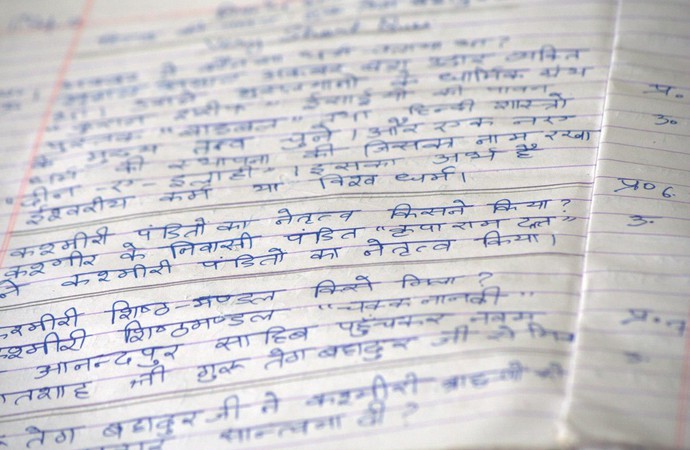 Very Short Ques
अकबर ने कौन सा धर्म चलाया था?
बादशाह अकबर बहुत उदार व्यक्ति
था। उसने मुसलमानों के धार्मिक ग्रंथ
"कुरान शरीफ" ईसाईयों की पावन
पुस्तक "बाइबल" तथा हिन्दी शास्त्रों
के मुख्य तत्व चुने। और एक नए
धर्म की स्थापना की जिसका नाम रखा
"दीन-ए-इलाही"। इसका अर्थ है
ईश्वरीय कर्म या विश्व धर्म।
कश्मीरी पंडितों का नेतृत्व किसने किया?
कश्मीर के निवासी पंडित "कृपा राम दत्त"
ने कश्मीरी पंडितों का नेतृत्व किया।
कश्मीरी शिष्ठ-मण्डल किसे मिला?
कश्मीरी शिष्ठमण्डल "चक्क नानकी"
आनन्दपुर साहिब पहुँचकर नवम
पातशाह श्री गुरू तेग बहादुर जी से मिला
तेग बहादुर जी ने कश्मीरी ब्राह्मणों को
सान्त्वना दी?
प्र०
उ०
प्र० 6.
उ.
प्र०7